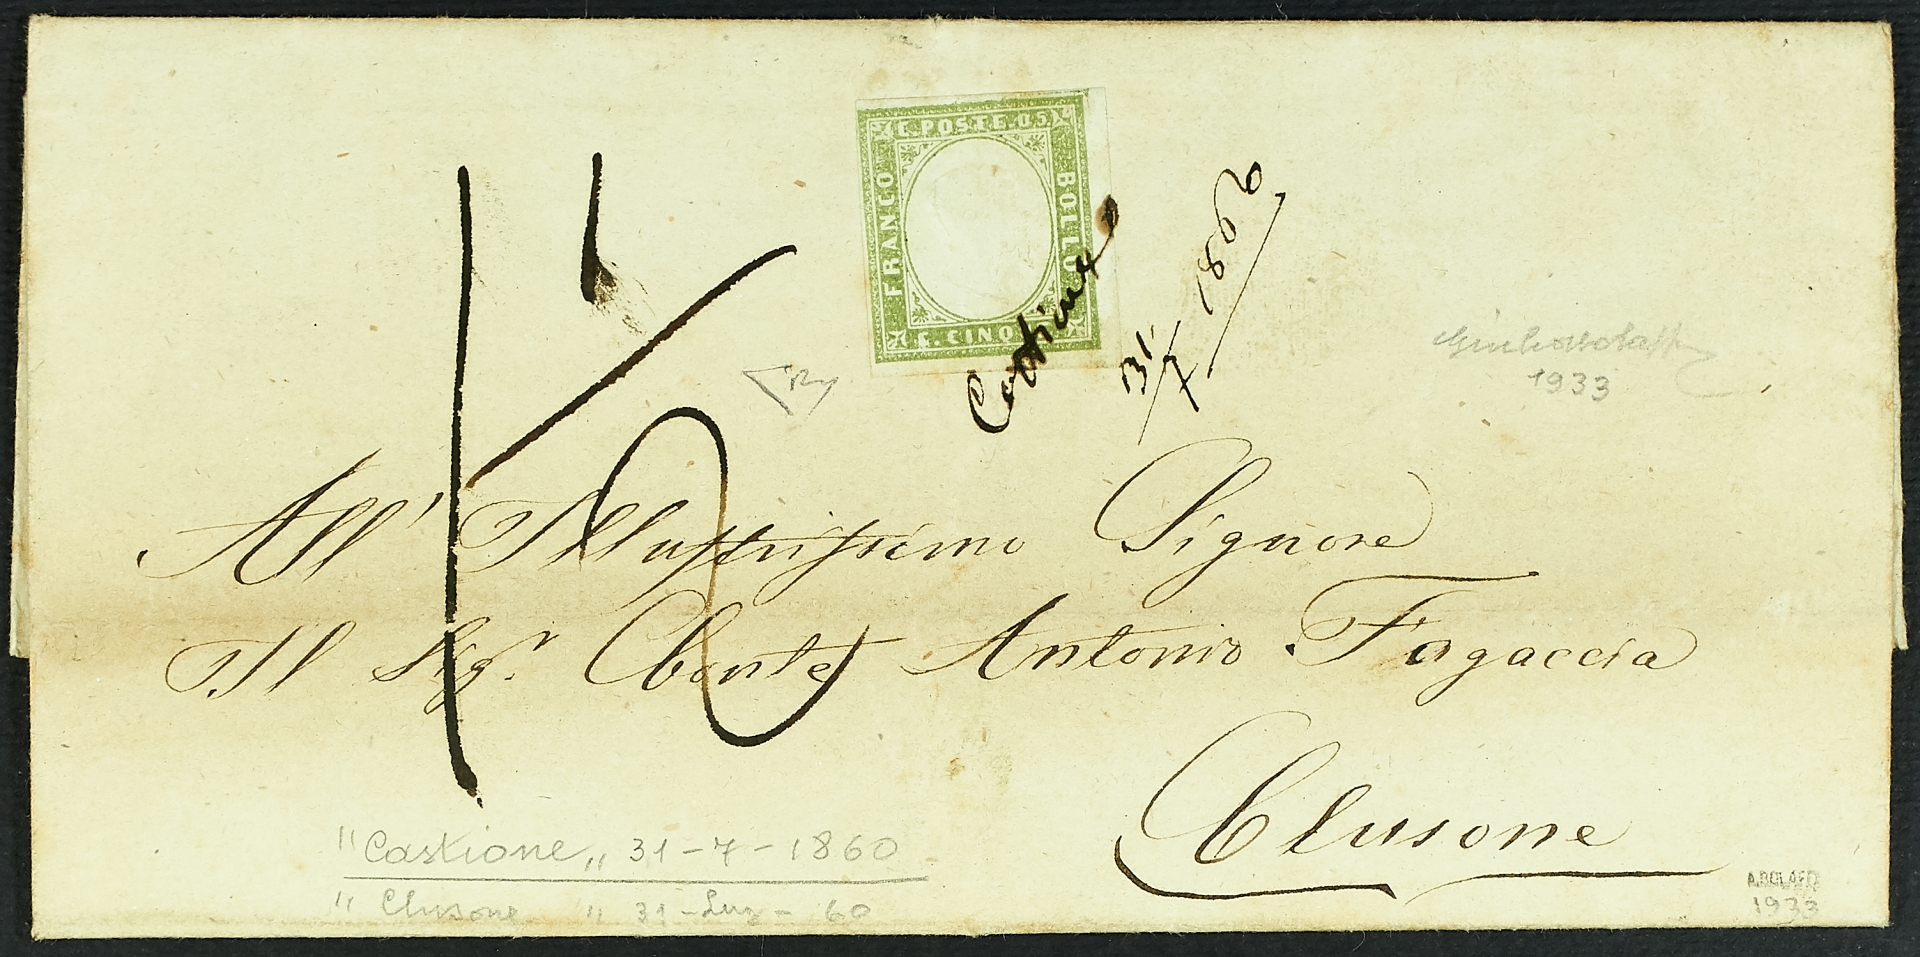 C. POSTE. 05
FRANCO
BOLLO
C. CINQ
Castione
31/7 1860
1933
All' Illustrissimo Signore
Il Sigr. Conte Antonio Fogaccia
Clusone
"Castione„ 31-7-1860
" Clusone " 31-Lug-60
A.BOLAFFI
1933